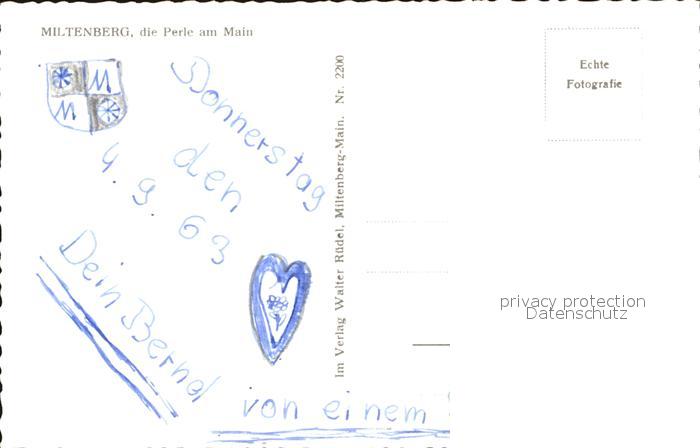 MILTENBERG, die Perle am Main
M
M
Donnerstag
den
4. 9. 63
Dein Bernd
von einem
Im Verlag Walter Rüdel, Miltenberg-Main. Nr. 2200
Echte
Fotografie
privacy protection
Datenschutz